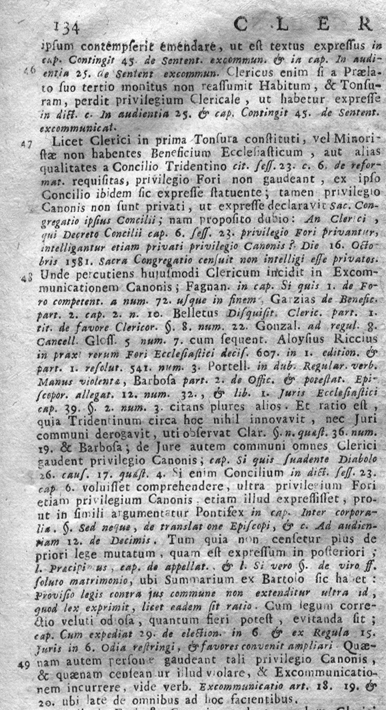 134 C L E R
ipsum contempserit emendare, ut est textus expressus in
cap. Contingit 45. de Sentent. excommun. & in cap. In audi-
46 entia 25. de Sentent excommun. Clericus enim si a Præla-
to suo tertio monitus non reassumit Habitum, & Tonsu-
ram, perdit privilegium Clericale, ut habetur expresse
in dict. c. In audientia 25. & cap. Contingit 45. de Sentent.
excommunicat.
47 Licet Clerici in prima Tonsura constituti, vel Minori-
stæ non habentes Beneficium Ecclesiasticum, aut alias
qualitates a Concilio Tridentino cit. sess. 23. c. 6. de refor-
mat. requisitas, privilegio Fori non gaudeant, ex ipso
Concilio ibidem sic expresse statuente; tamen privilegio
Canonis non sunt privati, ut expresse declaravit Sac. Con-
gregatio ipsius Concilii; nam proposito dubio: An Clerici,
qui Decreto Concilii cap. 6. sess. 23. privilegio Fori privantur,
intelligantur etiam privati privilegio Canonis? Die 16. Octo-
bris 1581. Sacra Congregatio censuit non intelligi esse privatos.
48 Unde percutiens hujusmodi Clericum incidit in Excom-
municationem Canonis; Fagnan. in cap. Si quis 1. de Fo-
ro competent. a num. 72. usque in finem, Garzias de Benefic.
part. 2. cap. 2. n. 10. Belletus Disquisit. Cleric. part. 1.
tit. de favore Clericor. §. 8. num. 22. Gonzal. ad regul. 8.
Cancell. Gloss. 5 num. 7. cum sequent. Aloysius Riccius
in prax. rerum Fori Ecclesiastici decis. 607. in 1. edition. &
part. 1. resolut. 541. num. 3. Portell. in dub. Regular. verb.
Manus violenta, Barbosa part. 2. de Offic. & potestat. Epi-
scopor. allegat. 12. num. 32., & lib. 1. Juris Ecclesiastici
cap. 39. §. 2. num. 3. citans plures alios. Et ratio est,
quia Tridentinum circa hoc nihil innovavit, nec Juri
communi derogavit, uti observat Clar. §. n. quæst. 36. num.
19. & Barbosa; de Jure autem communi omnes Clerici
gaudent privilegio Canonis; cap. Si quis suadente Diabolo
26. caus. 17. quæst. 4. Si enim Concilium in dict. sess. 23.
cap. 6. voluisset comprehendere, ultra privilegium Fori
etiam privilegium Canonis, etiam illud expressisset, pro-
ut in simili argumentatur Pontifex in cap. Inter corpora-
lia. §. Sed neque, de translatione Episcopi, & c. Ad audien-
tiam 12. de Decimis. Tum quia non censetur plus de
priori lege mutatum, quam est expressum in posteriori;
l. Præcipimus, cap. de appellat. & l. Si vero §. de viro ff.
soluto matrimonio, ubi Summarium ex Bartolo sic habet:
Provisio legis contra jus commune non extenditur ultra id,
quod lex exprimit, licet eadem sit ratio. Cum legum corre-
ctio veluti odiosa, quantum fieri potest, evitanda sit;
cap. Cum expediat 29. de election. in 6 & ex Regula 15.
Juris in 6. Odia restringi, & favores convenit ampliari. Quæ-
49 nam autem personæ gaudeant tali privilegio Canonis,
& quænam censeantur illud violare, & Excommunicatio-
nem incurrere, vide verb. Excommunicatio art. 18. 19. &
20. ubi late de omnibus ad hoc facientibus.